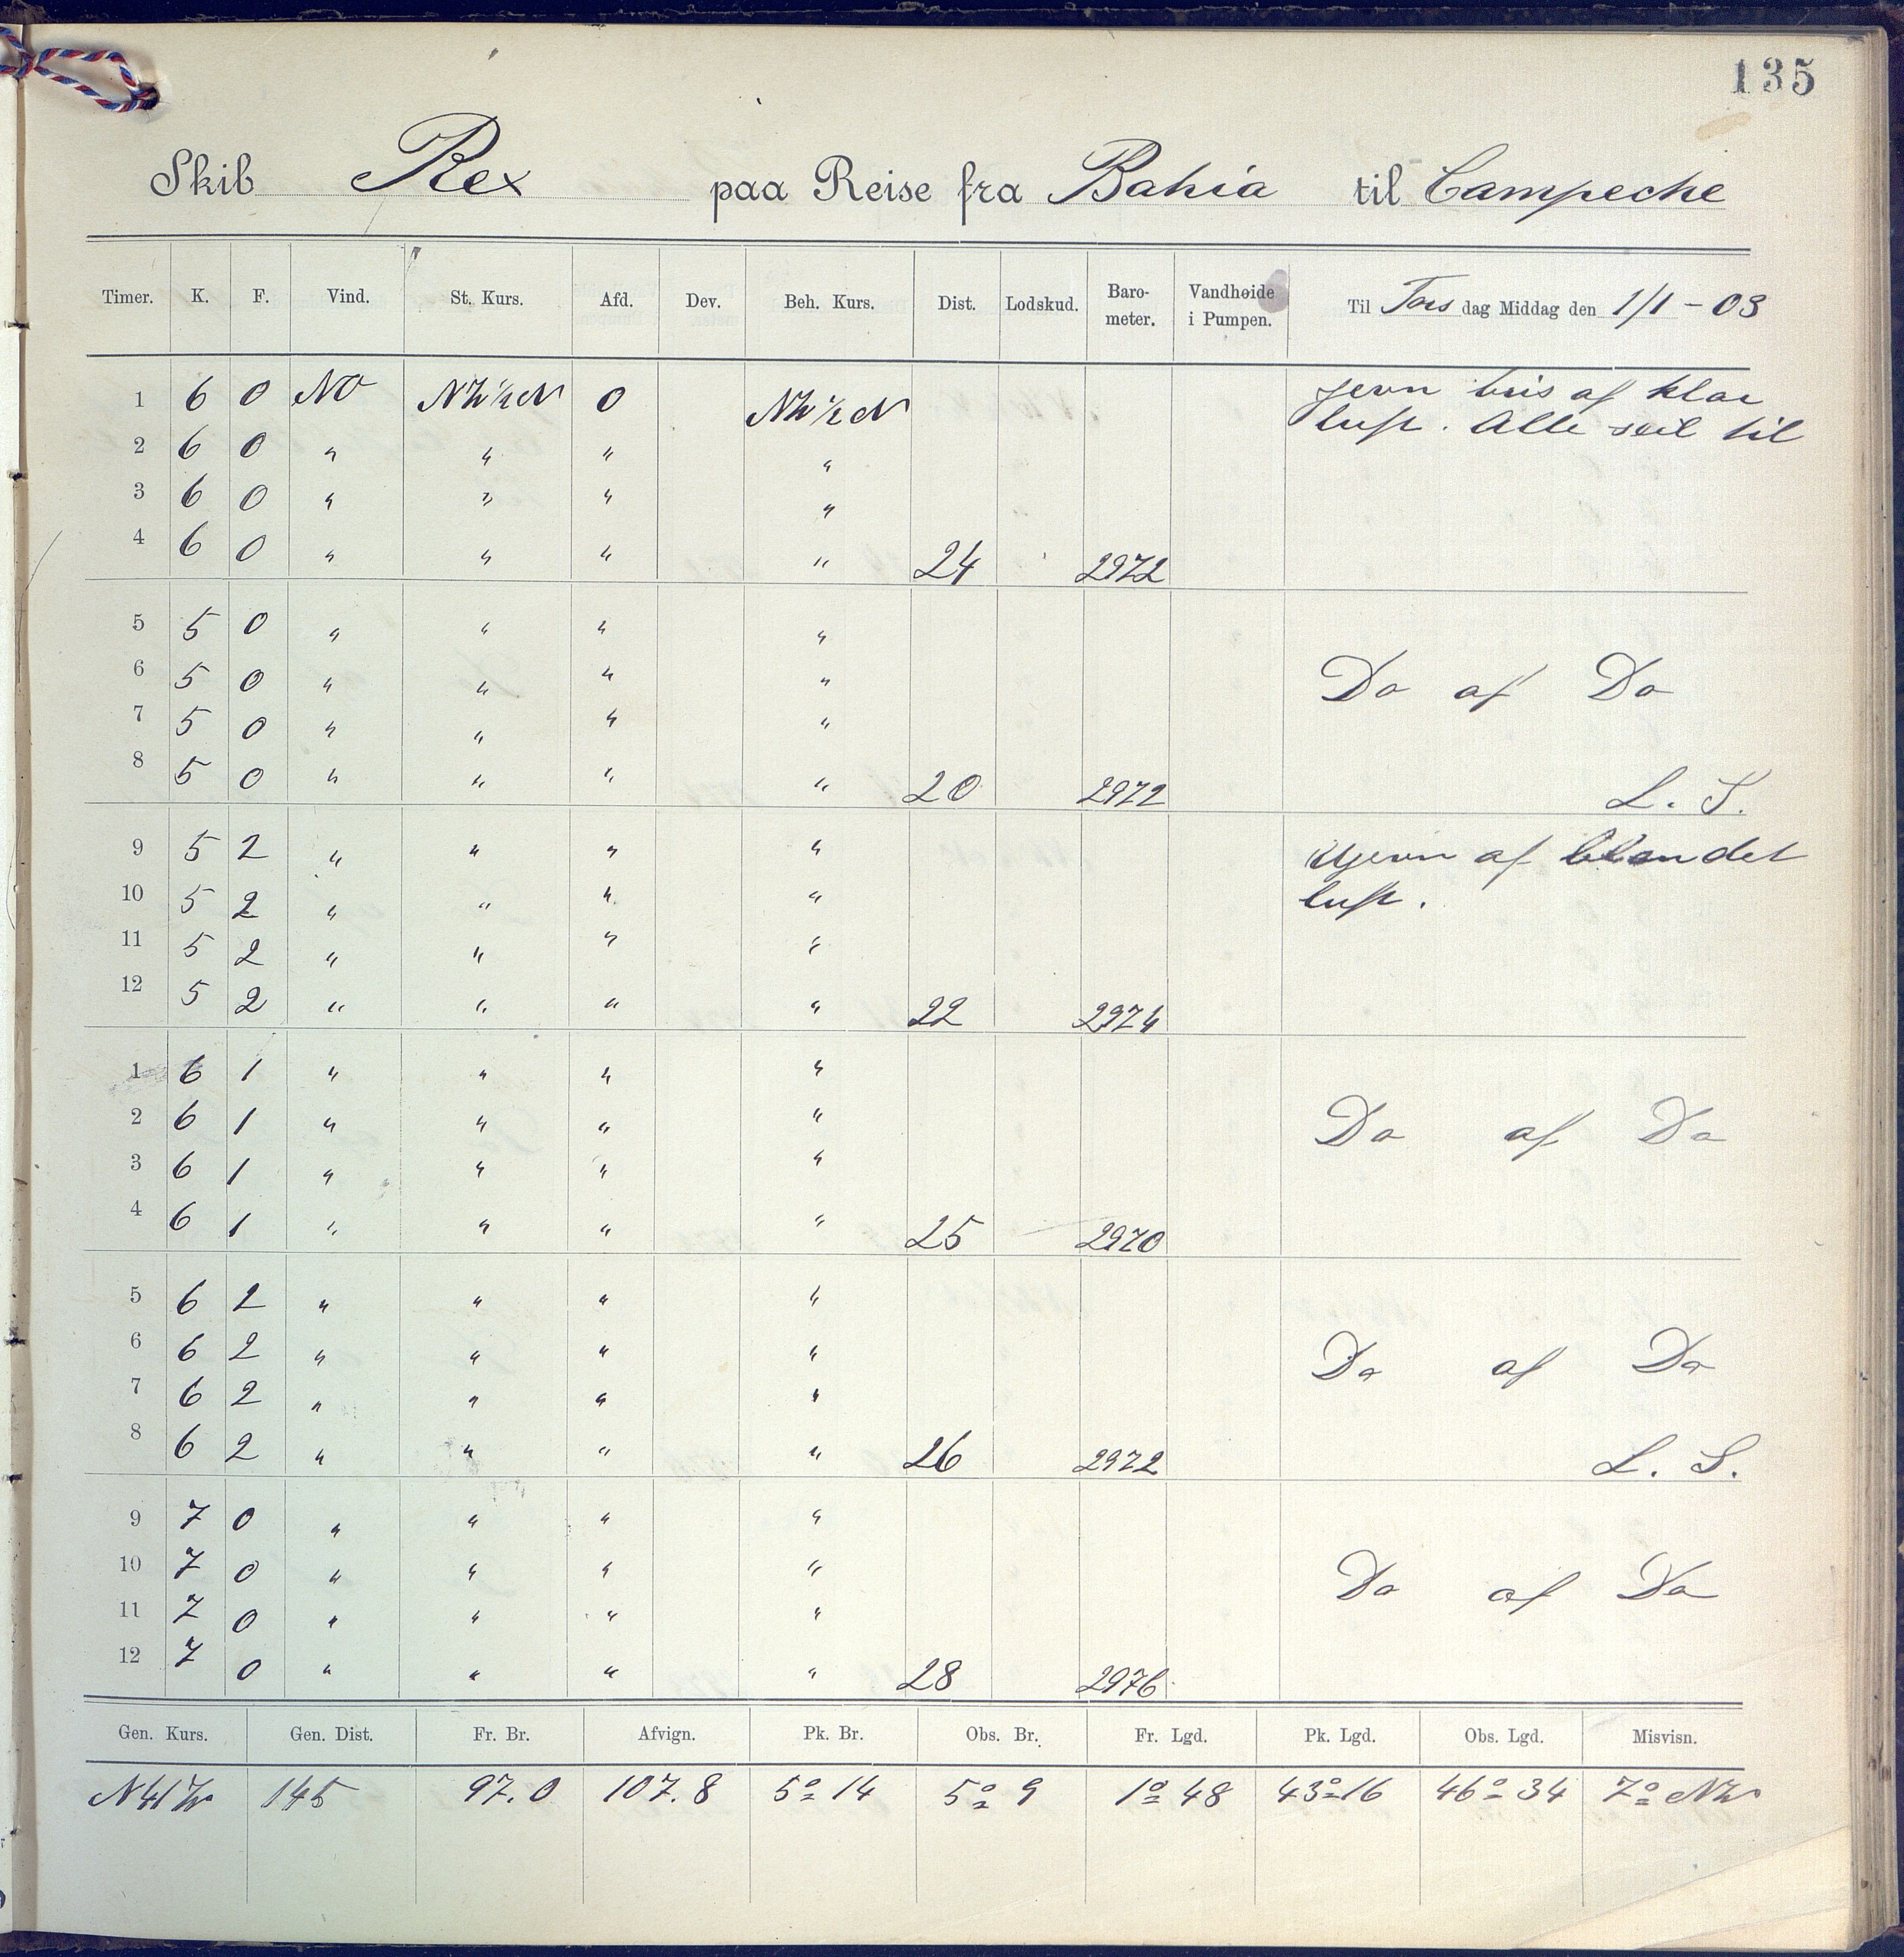 135
Skib Rex paa Reise fra Bahia til Campeche
Timer. K. F. Vind. St. Kurs. Afd. Dev. Beh. Kurs. Dist. Lodskud. Baro-meter. Vandhøide i Pumpen. Til Tors dag Middag den 1/1 - 03
1 6 0 NO NW½N 0 NW½N jevn bris af klar
luft. Alle seil til
2 6 0 " " " "
3 6 0 " " " "
4 6 0 " " " " 24 2972
5 5 0 " " " "
6 5 0 " " " " Do af Do
7 5 0 " " " "
8 5 0 " " " " 20 2972 L. S.
9 5 2 " " " " Ujevn af blandet
10 5 2 " " " " luft.
11 5 2 " " " "
12 5 2 " " " " 22 2974
1 6 1 " " " "
2 6 1 " " " " Do af Do
3 6 1 " " " "
4 6 1 " " " " 25 2970
5 6 2 " " " "
6 6 2 " " " " Do af Do
7 6 2 " " " "
8 6 2 " " " " 26 2972 L. S.
9 7 0 " " " "
10 7 0 " " " " Do af Do
11 7 0 " " " "
12 7 0 " " " " 28 2976
Gen. Kurs. Gen. Dist. Fr. Br. Afvign. Pk. Br. Obs. Br. Fr. Lgd. Pk. Lgd. Obs. Lgd. Misvisn.
N41W 145 97.0 107.8 5° 14 5° 9 1° 48 43° 16 46° 34 7° NW